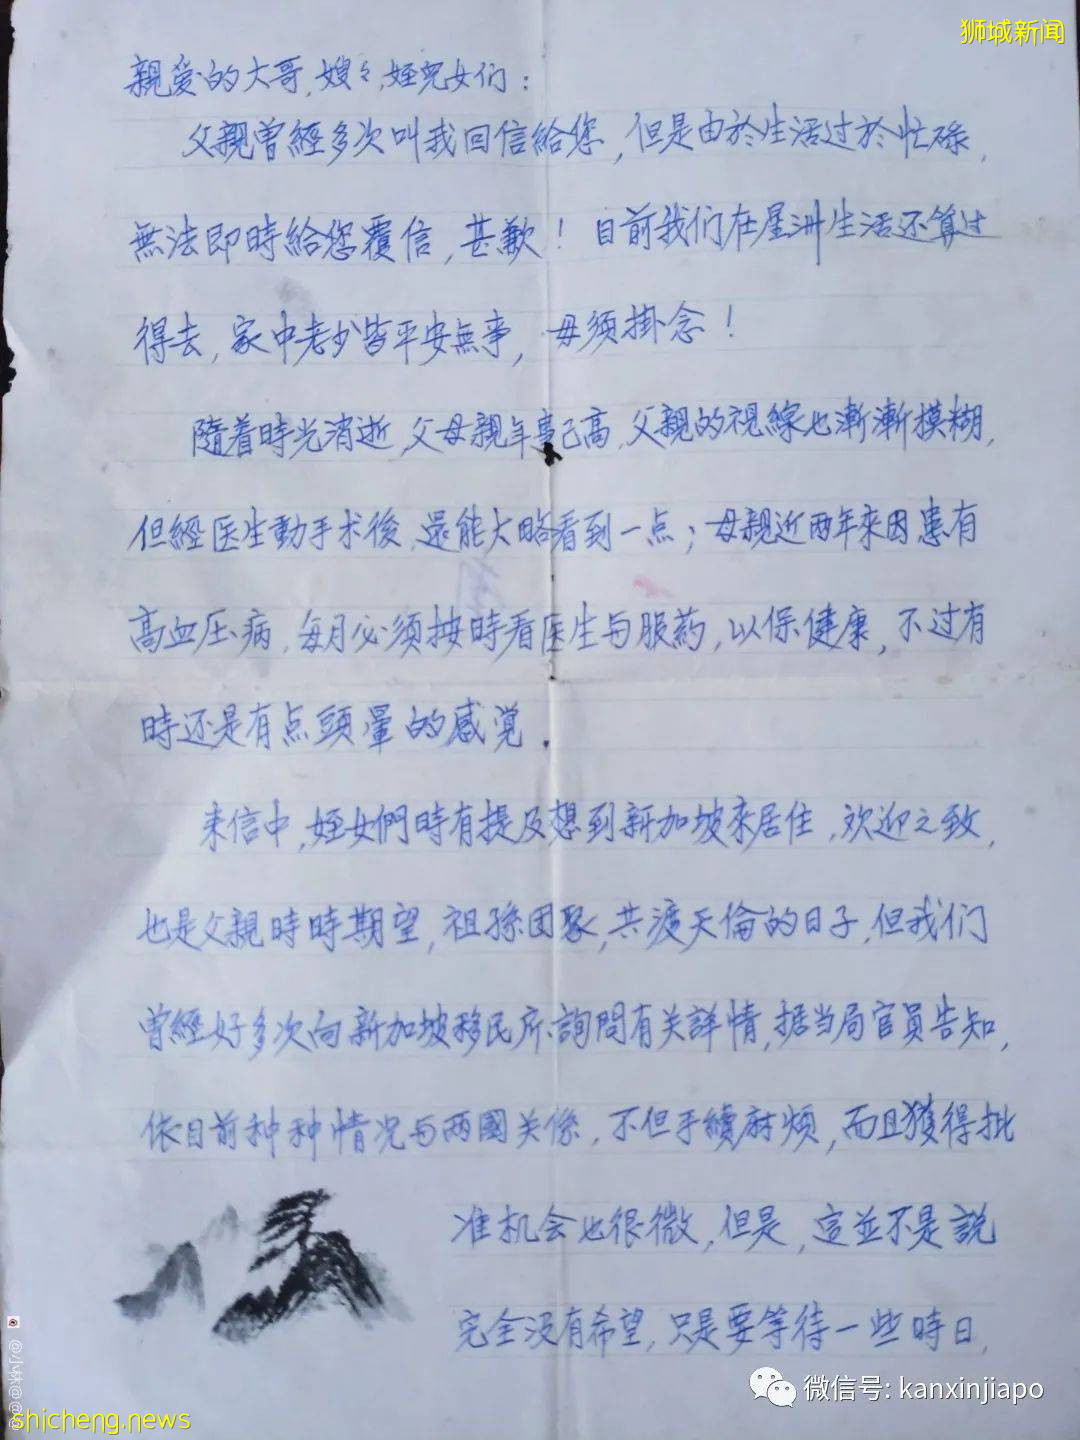 狮城新闻
親爱的大哥,嫂々,姪兒女们:
父親曾經多次叫我回信給您,但是由於生活过於忙碌,
無法即時給您覆信,甚歉!目前我们在星洲生活还算过
得去,家中老少皆平安無事,毋须掛念!
隨着時光消逝,父母親年事已高,父親的視線也漸漸模糊,
但經医生動手术後,還能大略看到一点;母親近两年來因患有
高血压病,每月必须按時看医生与服药,以保健康,不过有
時还是有点頭暈的感觉.
来信中,姪女們時有提及想到新加坡來居住,欢迎之致,
也是父親時時期望,祖孫团聚,共渡天倫的日子,但我们
曾經好多次向新加坡移民所詢問有关詳情,据当局官員告知,
依目前种种情况与两國关係,不但手續麻烦,而且獲得批
准机会也很微,但是,這並不是説
完全没有希望,只是要等待一些時日,
微信号: kanxinjiapo
@小林@@@
shicheng.news